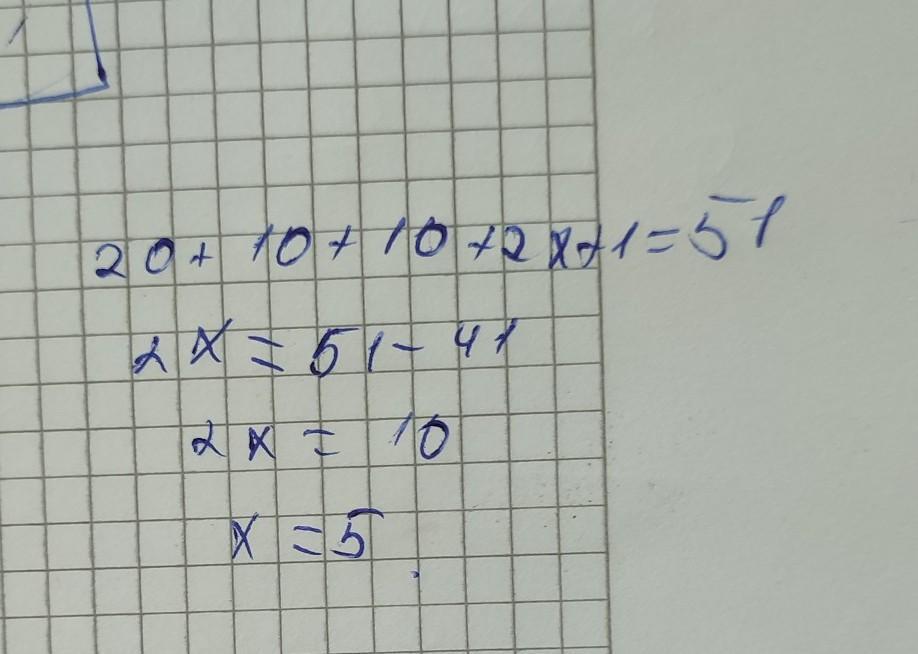 20+10+10+2x+1=51
2x=51-41
2x=10
x=5